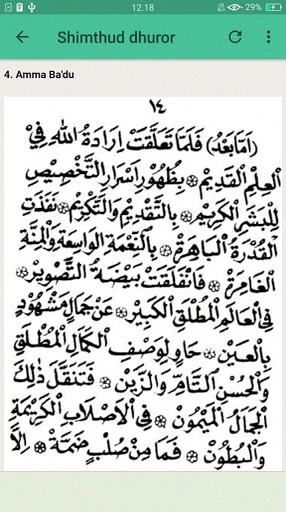 12.18
29%
Shimthud dhuror
4. Amma Ba'du
١٤
(اَمَّابَعْدُ) فَلَمَّا تَعَلَّقَتْ اِرَادَةُ اللهِ فِيْ
الْعِلْمِ الْقَدِيْمِ ۞ بِظُهُوْرِ اَسْرَارِ التَّخْصِيْصِ
لِلْبَشَرِ الْكَرِيْمِ ۞ بِالتَّقْدِيْمِ وَالتَّكْرِيْمِ ۞ نَفَذَتِ
الْقُدْرَةُ الْبَاهِرَةُ ۞ بِالنِّعْمَةِ الْوَاسِعَةِ وَالْمِنَّةِ
الْغَامِرَةِ ۞ فَانْفَلَقَتْ بَيْضَةُ التَّصْوِيْرِ ۞
فِي الْعَالَمِ الْمُطْلَقِ الْكَبِيْرِ ۞ عَنْ جَمَالٍ مَشْهُوْدٍ
بِالْعَيْنِ ۞ حَاوٍ لِوَصْفِ الْكَمَالِ الْمُطْلَقِ
وَالْحُسْنِ التَّامِّ وَالزَّيْنِ ۞ فَتَنَقَّلَ ذٰلِكَ
الْجَمَالُ الْمَيْمُوْنُ ۞ فِي الْاَصْلَابِ الْكَرِيْمَةِ
وَالْبُطُوْنِ ۞ فَمَا مِنْ صُلْبٍ ضَمَّهُ ۞ اِلَّا